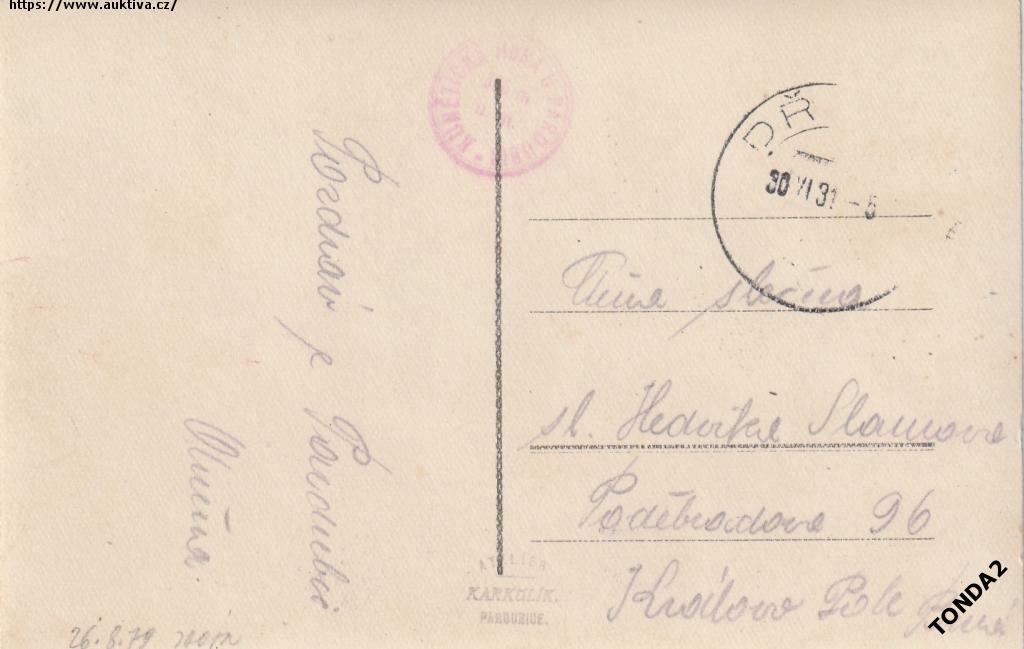 https://www.auktiva.cz/
KUNĚTICKÁ HORA U PARDUBIC
DŘ
30 VI 31 - 5
Pozdrav z
Pardubic
slečna
sl. Hedvika Slamova
Poděbradova 96
Královo Pole
ATELIER
KARKULÍK.
PARDUBICE.
26.8.79
TONDA2